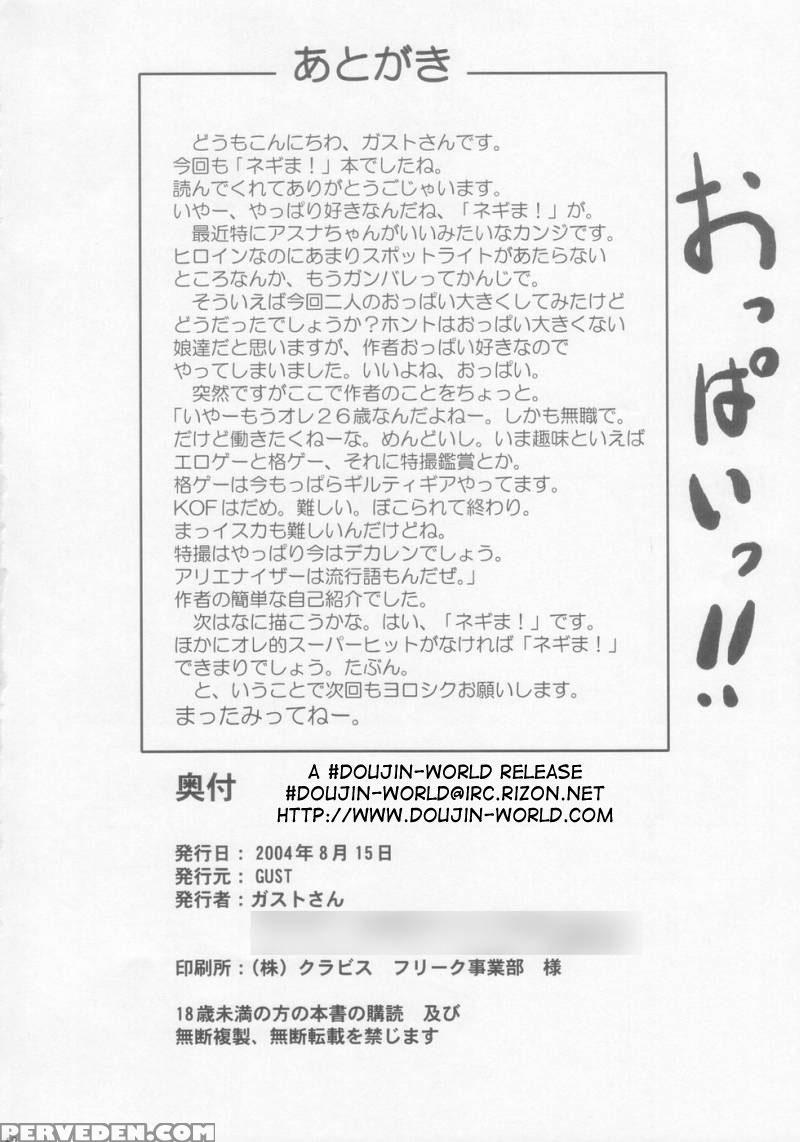 あとがき
どうもこんにちわ、ガストさんです。
今回も「ネギま!」本でしたね。
読んでくれてありがとうごじゃいます。
いやー、やっぱり好きなんだね、「ネギま!」が。
最近特にアスナちゃんがいいみたいなカンジです。
ヒロインなのにあまりスポットライトがあたらない
ところなんか、もうガンバレってかんじで。
そういえば今回二人のおっぱい大きくしてみたけど
どうだったでしょうか?ホントはおっぱい大きくない
娘達だと思いますが、作者おっぱい好きなので
やってしまいました。いいよね、おっぱい。
突然ですがここで作者のことをちょっと。
「いやーもうオレ26歳なんだよねー。しかも無職で。
だけど働きたくねーな。めんどいし。いま趣味といえば
エロゲーと格ゲー、それに特撮鑑賞とか。
格ゲーは今もっぱらギルティギアやってます。
KOFはだめ。難しい。ぼこられて終わり。
まっイスカも難しいんだけどね。
特撮はやっぱり今はデカレンでしょう。
アリエナイザーは流行語もんだぜ。」
作者の簡単な自己紹介でした。
次はなに描こうかな。はい、「ネギま!」です。
ほかにオレ的スーパーヒットがなければ「ネギま!」
できまりでしょう。たぶん。
と、いうことで次回もヨロシクお願いします。
まったみってねー。
おっぱいっ!!
奥付
A #DOUJIN-WORLD RELEASE
#DOUJIN-WORLD@IRC.RIZON.NET
HTTP://WWW.DOUJIN-WORLD.COM
発行日:2004年8月15日
発行元:GUST
発行者:ガストさん
印刷所:(株)クラビス フリーク事業部 様
18歳未満の方の本書の購読 及び
無断複製、無断転載を禁じます
PERVEDEN.COM